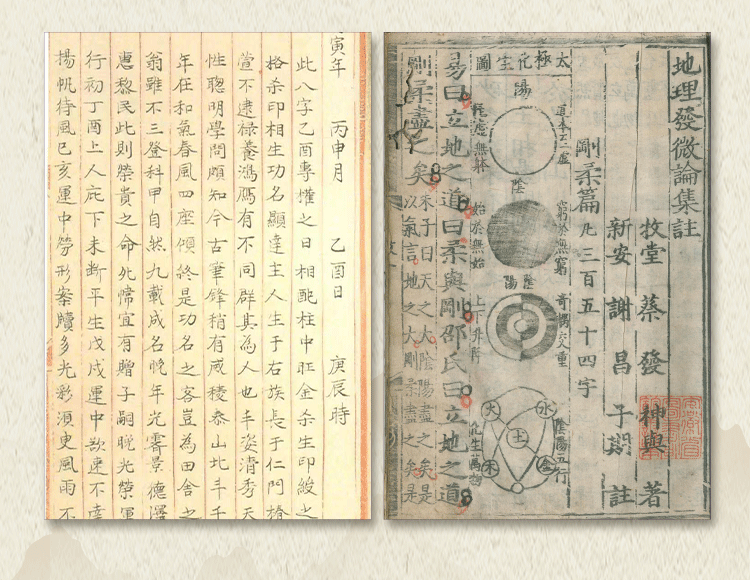 寅年 丙申月 乙酉日 庚辰時
此八字乙酉專權之日相配柱中旺金杀生印綬之
格杀印相生功名顯達主人生于右族長于仁門椿
萱不逮禄養鴻鴈有不同群其為人也丰姿清秀天
性聰明學問頗知今古筆鋒稍有威稜泰山北斗千
年在和氣春風四座傾終是功名之客豈為田舍之
翁雖不三登科甲自然九載成名晚年光霽景德澤
惠黎民此則榮貴之命宜有贈子嗣晚光榮
行初丁酉上人庇下未斷平生戊戌運中欲速不達
揚帆待風己亥運中勞形案牘多光彩須更風雨不
地理發微論集註
牧堂 蔡發 神與 著
新安 謝昌 子期 註
剛柔篇 凡三百五十四字
太極化生圖
陽
虛無
陰
窮於無窮
始於無始
陰陽
上下升降
陰陽五行
化生萬物
水
火
土
金
木
易曰立地之道曰柔與剛邵氏曰立地之道
剛柔盡之矣
朱子曰天之大陰陽盡之矣是
以氣言地之大剛柔盡之矣是